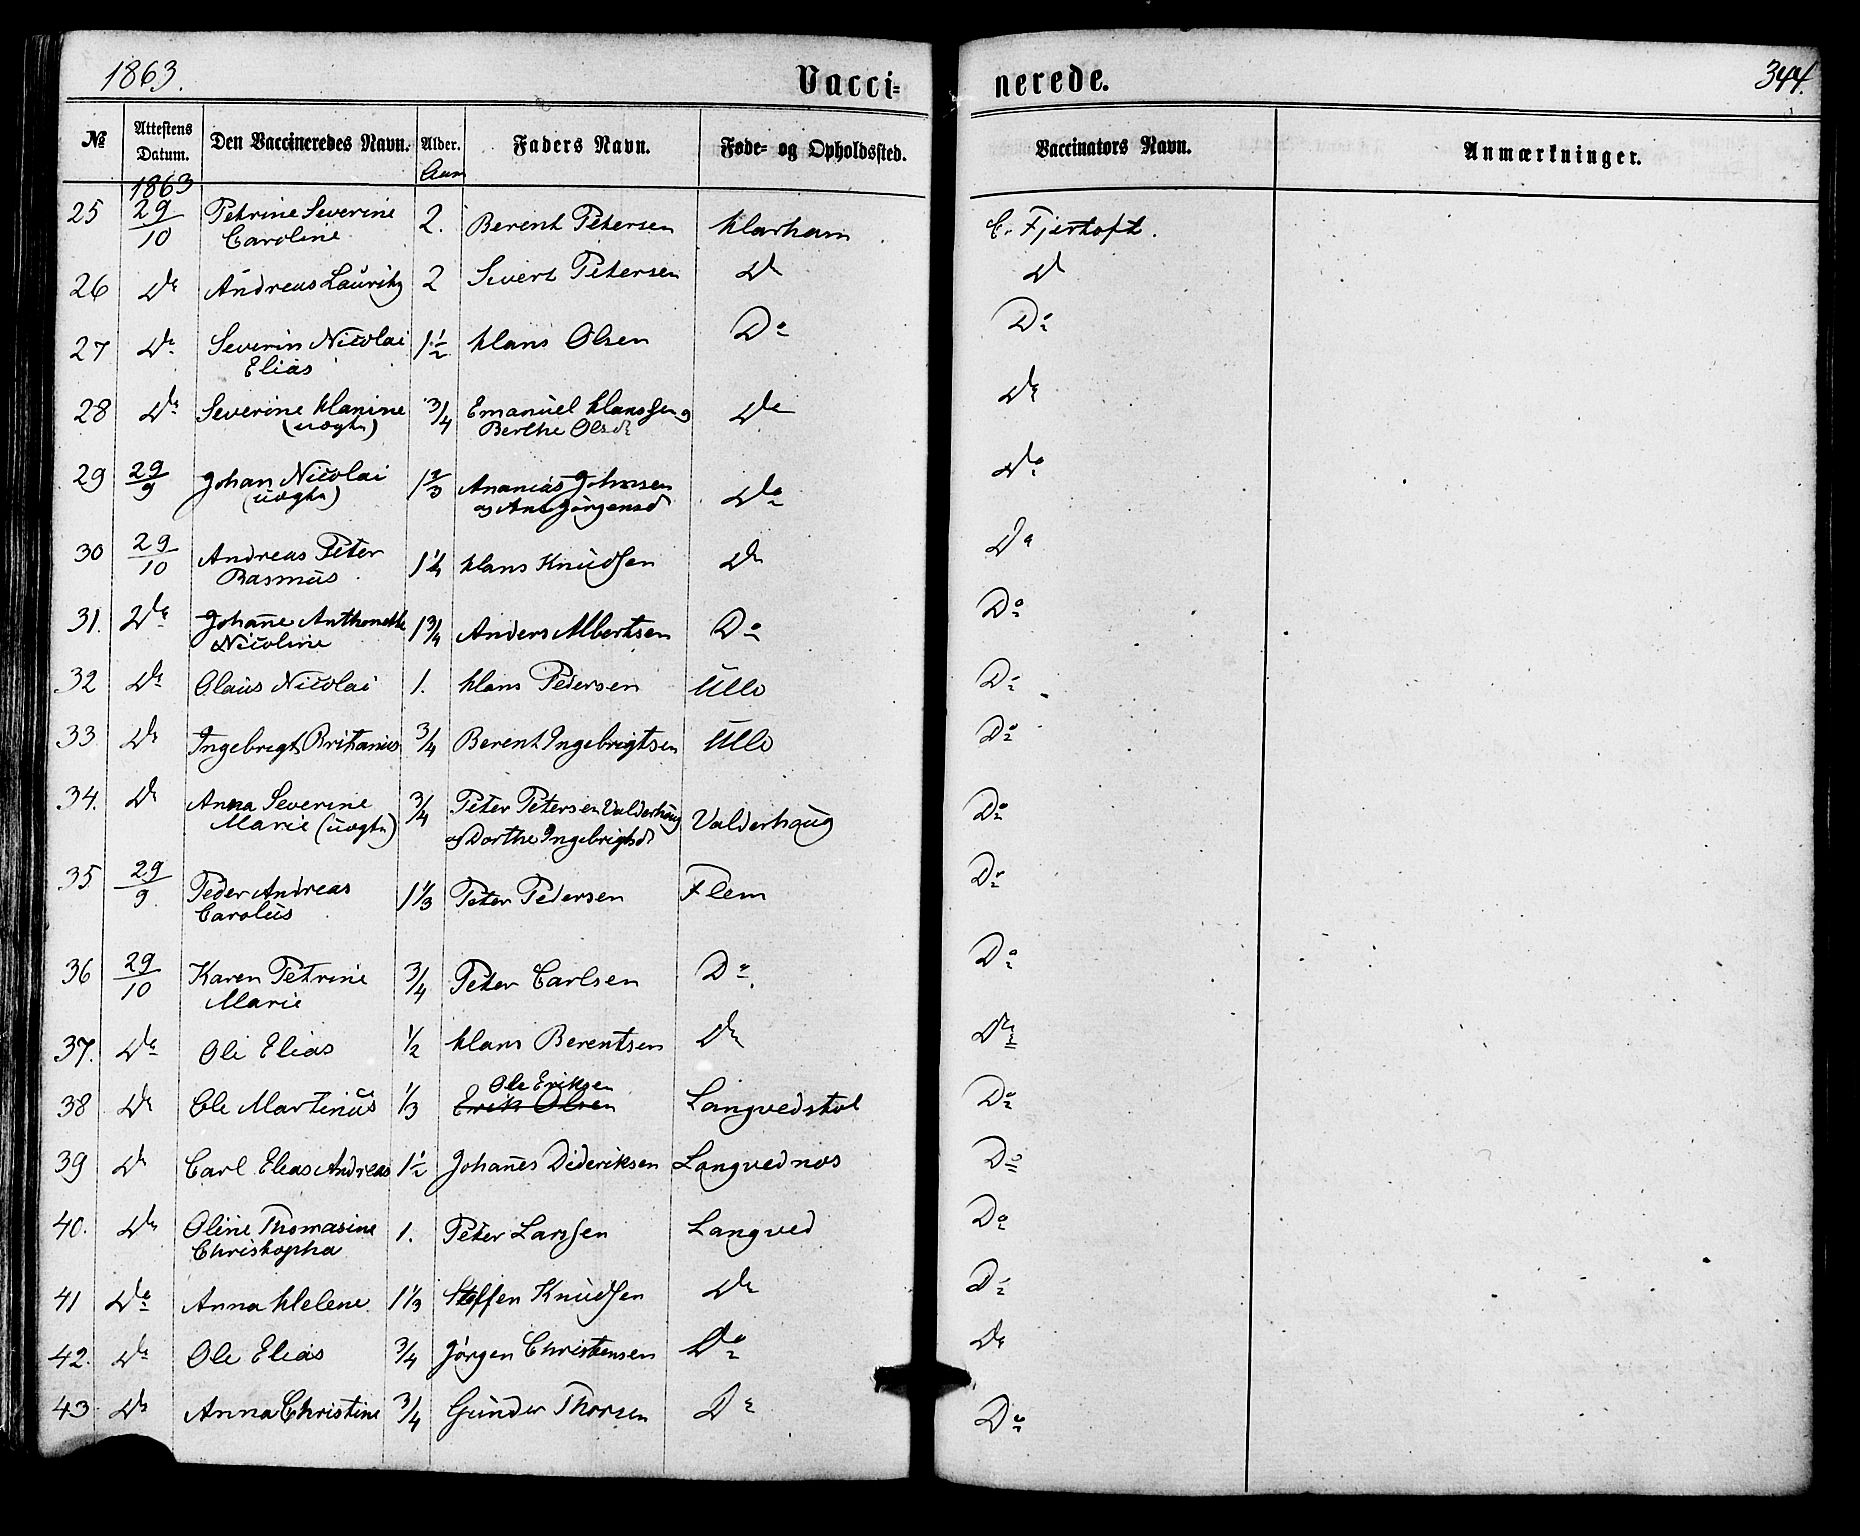 1863.
Vacci=
nerede.
344.
№ Attestens Datum. Den Vaccineredes Navn. Alder. Faders Navn. Føde- og Opholdssted. Vaccinators Navn. Anmærkninger.
1863 Aar
25 29/10 Petrine Severine 2. Berent Petersen Harham C. Fjertoft.
Caroline
26 Do Andreas Lauritz 2 Sivert Petersen Do Do
27 Do Severin Nicolai 1 1/2 Hans Olsen Do Do
Elias
28 Do Severine Hanine 3/4 Emanuel Hanssen og Do Do
(uægte) Berthe Olsdr
29 29/9 Johan Nicolai 1 2/3 Ananias Johnsen Do Do
(uægte) og Ane Jørgensd
30 29/10 Andreas Peter 1 1/4 Hans Knudsen Do Do
Rasmus
31. Do Johanne Anthonette 1 3/4 Anders Albertsen Do Do
Nicoline
32 Do Olaus Nicolai 1. Hans Pedersen Ulla Do
33 Do Ingebregt Britanius 3/4 Berent Ingebrigtsen Ulla Do
34. Do Anna Severine 3/4 Peter Petersen Valderhaug Valderhaug Do
Marie (uægte) og Dorthe Ingebrigtsd
35 29/9 Peder Andreas 1 1/3 Peter Pedersen Flem Do
Carolus
36 29/10 Karen Petrine 3/4 Peter Carlsen Do Do
Marie
37. Do Ole Elias 1/2 Hans Berentsen Do Do
38 Do Ole Martinus 1/3 Ole Eriksen Langvedstol Do
Erik Olsen
39 Do Carl Elias Andreas 1 1/2 Johanes Dideriksen Langvednæs Do
40. Do Oline Thomasine 1. Peter Larssen Langved Do
Christopha
41 Do Anna Helene 1 1/3 Steffen Knudsen Do Do
42. Do Ole Elias 3/4 Jørgen Christensen Do Do
43 Do Anna Christine 3/4 Gunder Thorsen Do Do